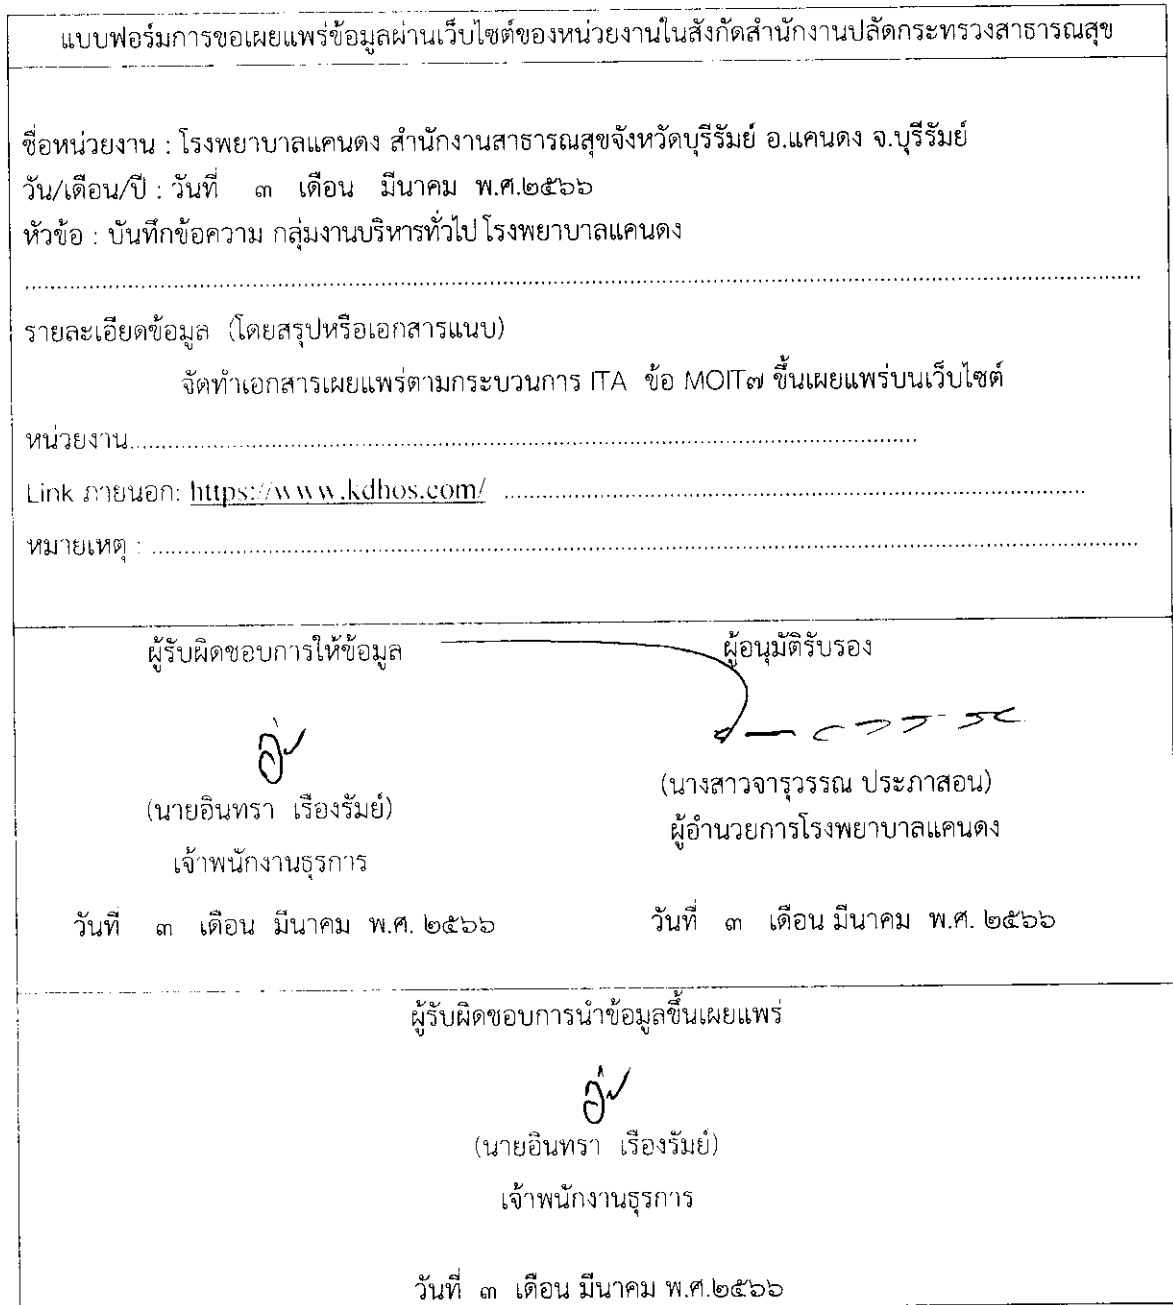 แบบฟอร์มการขอเผยแพร่ข้อมูลผ่านเว็บไซต์ของหน่วยงานในสังกัดสำนักงานปลัดกระทรวงสาธารณสุข
ชื่อหน่วยงาน : โรงพยาบาลแคนดง สำนักงานสาธารณสุขจังหวัดบุรีรัมย์ อ.แคนดง จ.บุรีรัมย์
วัน/เดือน/ปี : วันที่ ๓ เดือน มีนาคม พ.ศ.๒๕๖๖
หัวข้อ : บันทึกข้อความ กลุ่มงานบริหารทั่วไป โรงพยาบาลแคนดง
รายละเอียดข้อมูล (โดยสรุปหรือเอกสารแนบ)
จัดทำเอกสารเผยแพร่ตามกระบวนการ ITA ข้อ MOIT๗ ขึ้นเผยแพร่บนเว็บไซต์
หน่วยงาน
Link ภายนอก: https://www.kdhos.com/
หมายเหตุ :
ผู้รับผิดชอบการให้ข้อมูล ผู้อนุมัติรับรอง
(นายอินทรา เรืองรัมย์) (นางสาวจารุวรรณ ประภาสอน)
เจ้าพนักงานธุรการ ผู้อำนวยการโรงพยาบาลแคนดง
วันที่ ๓ เดือน มีนาคม พ.ศ. ๒๕๖๖ วันที่ ๓ เดือน มีนาคม พ.ศ. ๒๕๖๖
ผู้รับผิดชอบการนำข้อมูลขึ้นเผยแพร่
(นายอินทรา เรืองรัมย์)
เจ้าพนักงานธุรการ
วันที่ ๓ เดือน มีนาคม พ.ศ.๒๕๖๖